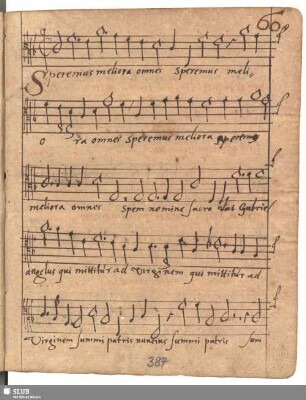 60
Speremus meliora omnes speremus meli,
o ra omnes speremus meliora speremus
meliora omnes spem nomine sacro dat Gabriel
angelus qui mittitur ad virginem qui mittitur ad
Virginem summi patris nuncius summi patris sum
387
SLUB